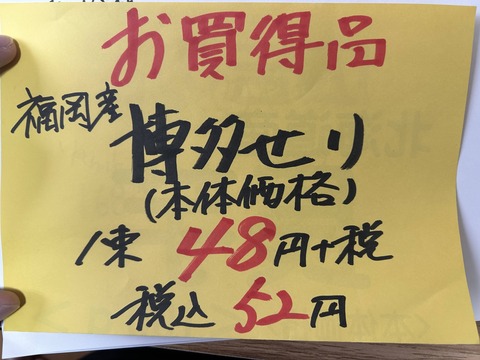 お買得品
福岡産
博多せり
(本体価格)
1束 48円+税
税込 52円